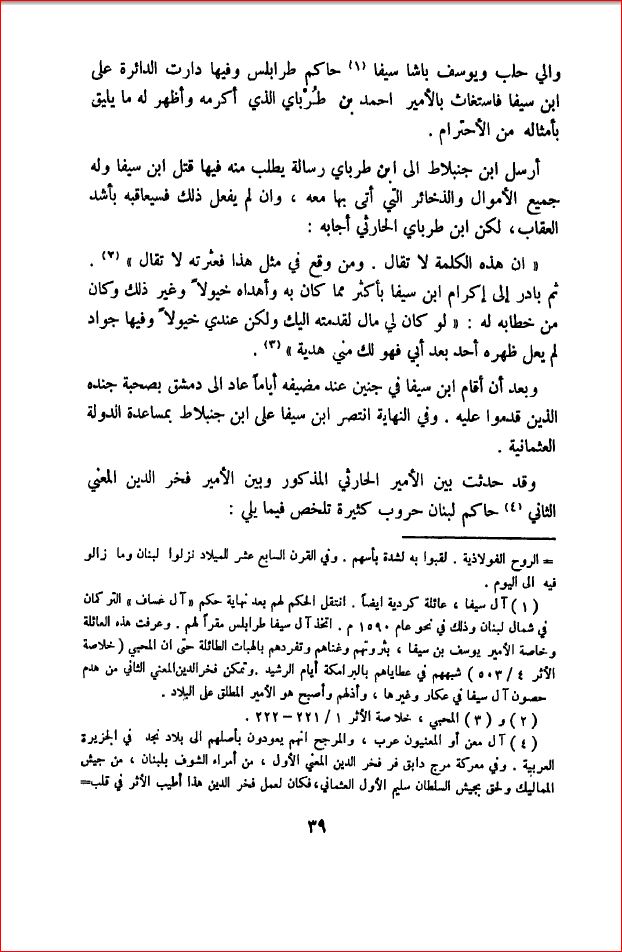 والي حلب ويوسف باشا سيفا (١) حاكم طرابلس وفيها دارت الدائرة على
ابن سيفا فاستغاث بالأمير احمد بن طُرْباي الذي أكرمه وأظهر له ما يليق
بأمثاله من الأحترام .
أرسل ابن جنبلاط الى ابن طرباي رسالة يطلب منه فيها قتل ابن سيفا وله
جميع الأموال والذخائر التي أتى بها معه ، وان لم يفعل ذلك فسيعاقبه بأشد
العقاب، لكن ابن طرباي الحارثي أجابه :
« ان هذه الكلمة لا تقال . ومن وقع في مثل هذا فعثرته لا تقال » (٢) .
ثم بادر إلى إكرام ابن سيفا بأكثر مما كان به وأهداه خيولاً وغير ذلك وكان
من خطابه له : « لو كان لي مال لقدمته اليك ولكن عندي خيولاً وفيها جواد
لم يعل ظهره أحد بعد أبي فهو لك مني هدية » (٣) .
وبعد أن أقام ابن سيفا في جنين عند مضيفه أياماً عاد الى دمشق بصحبة جنده
الذين قدموا عليه . وفي النهاية انتصر ابن سيفا على ابن جنبلاط بمساعدة الدولة
العثمانية .
وقد حدثت بين الأمير الحارثي المذكور وبين الأمير فخر الدين المعني
الثاني (٤) حاكم لبنان حروب كثيرة تلخص فيما يلي :
= الروح الفولاذية . لقبوا به لشدة بأسهم . وفي القرن السابع عشر للميلاد نزلوا لبنان وما زالو
فيه الى اليوم .
(١) آل سيفا ، عائلة كردية ايضاً . انتقل الحكم لهم بعد نهاية حكم «آل عساف» التركمان
في شمال لبنان وذلك في نحو عام ١٥٩٠ م . اتخذ آل سيفا طرابلس مقراً لهم . وعرفت هذه العائلة
وخاصة الأمير يوسف بن سيفا ، بثروتهم وغناهم وتفردهم بالهبات الطائلة حتى ان المحبي ( خلاصة
الأثر ٤ / ٥٠٣ ) شبههم في عطاياهم بالبرامكة أيام الرشيد .وتمكن فخرالدين‌المعني الثاني من هدم
حصون آل سيفا في عكار وغيرها ، وأذلهم وأصبح هو الأمير المطلق على البلاد .
(٢) و (٣) المحبي ، خلاصة الأثر ١ / ٢٢١ – ٢٢٢ .
(٤) آل معن أو المعنيون عرب ، والمرجح انهم يعودون بأصلهم الى بلاد نجد في الجزيرة
العربية . وفي معركة مرج دابق فر فخر الدين المعني الأول ، من أمراء الشوف بلبنان ، من جيش
المماليك ولحق بجيش السلطان سليم الأول العثماني،فكان لعمل فخر الدين هذا أطيب الأثر في قلب=
٣٩